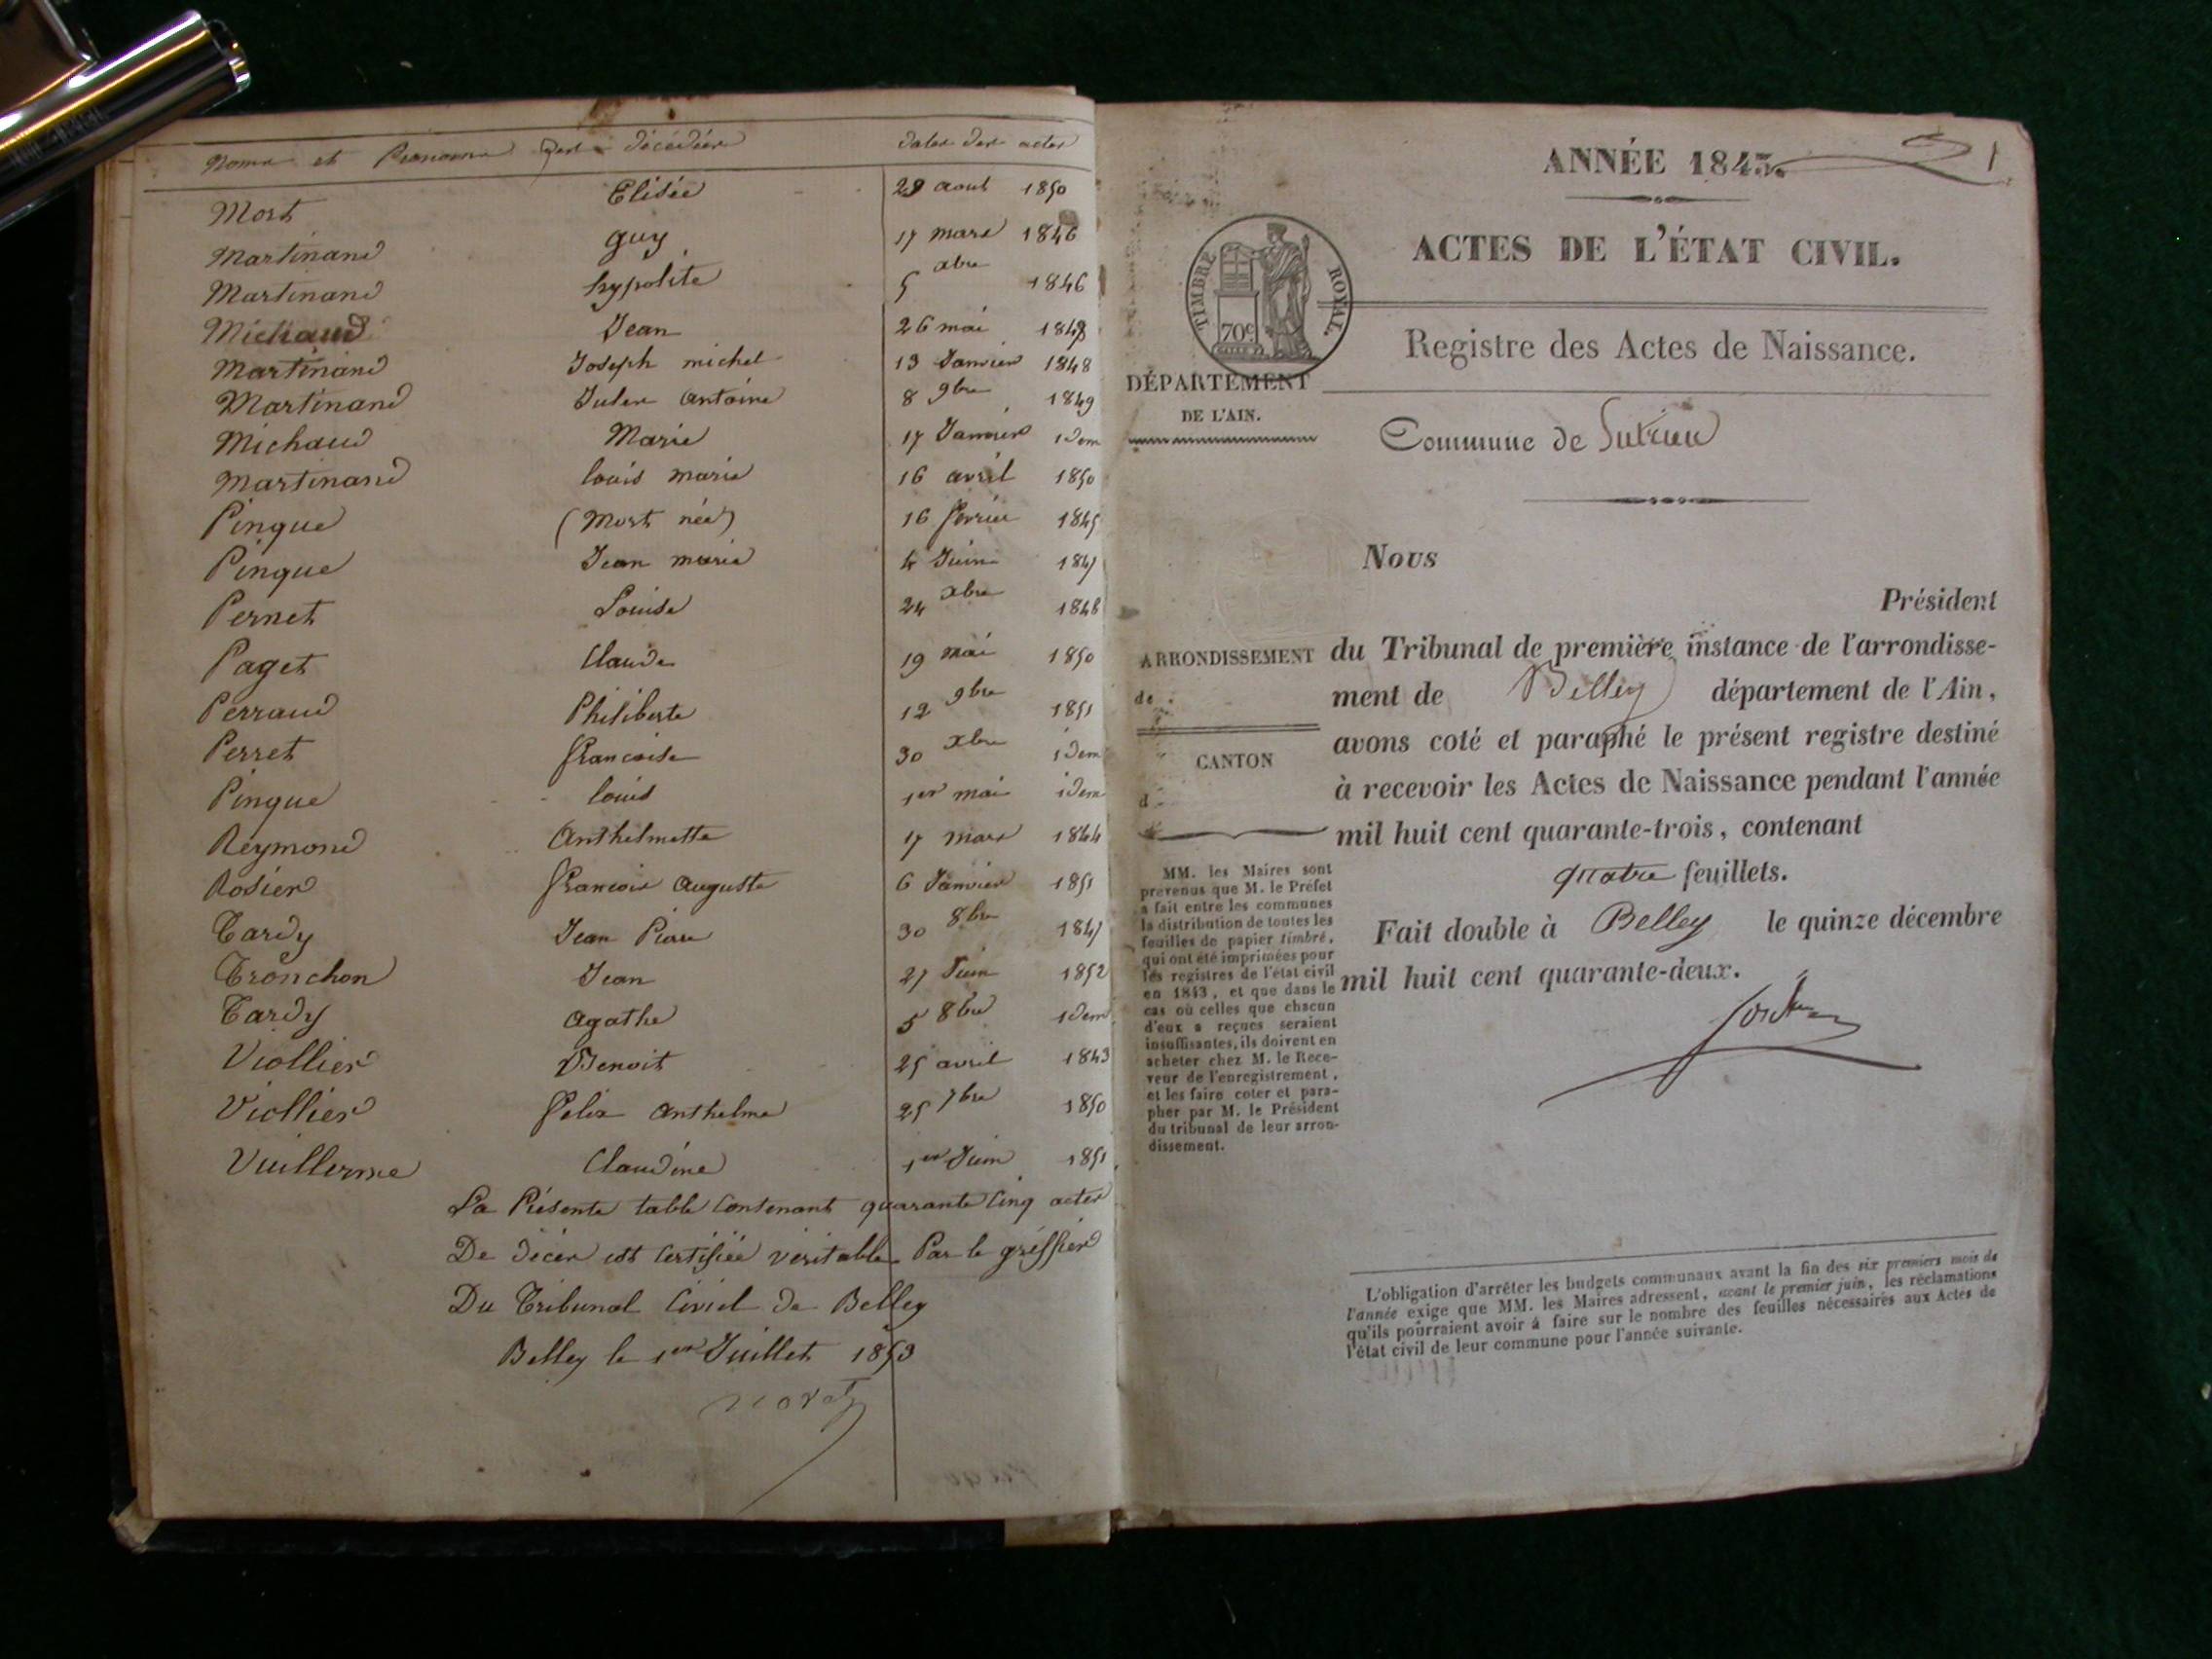 Noms et Prénoms des décédés dates des actes
Mort Elisée 28 aout 1850
Martinand guy 17 mars 1846
Martinand hypolite 5 xbre 1846
Michaud Jean 26 mai 1848
Martinand Joseph michel 13 Janvier 1848
Martinand Jules Antoine 8 9bre 1849
Michaud Marie 17 Janvier idem
Martinand louis marie 16 avril 1850
Pingue (Mort née) 16 fevrier 1845
Pingue Jean marie 4 Juin 1847
Pernet Louise 24 xbre 1848
Paget Claude 19 mai 1850
Perraud Philiberte 12 9bre 1851
Perret francoise 30 xbre idem
Pingue louis 1er mai idem
Reymond Anthelmette 17 mars 1844
Rosier francois Auguste 6 Janvier 1851
Tardy Jean 30 8bre 1847
Tronchon Jean 27 Juin 1852
Tardy Agathe 5 8bre idem
Viollier Benoit 25 avril 1843
Viollier felix Anthelme 25 7bre 1850
Vuillerme Claudine 1er Juin 1851
La Présente table Contenant quarante Cinq actes
De décès est Certifiée véritable Par le greffier
Du Tribunal Civil de Belley
Belley le 1er Juillet 1853
1
ANNÉE 1843.
ACTES DE L'ÉTAT CIVIL.
TIMBRE ROYAL.
70c
Registre des Actes de Naissance.
DÉPARTEMENT
DE L'AIN.
Commune de Sutrieu
Nous
Président
ARRONDISSEMENT
de
CANTON
d
du Tribunal de première instance de l'arrondisse-
ment de Belley département de l'Ain,
avons coté et paraphé le présent registre destiné
à recevoir les Actes de Naissance pendant l'année
mil huit cent quarante-trois, contenant
quatre feuillets.
Fait double à Belley le quinze décembre
mil huit cent quarante-deux.
MM. les Maires sont
prévenus que M. le Préfet
a fait entre les communes
la distribution de toutes les
feuilles de papier timbré,
qui ont été imprimées pour
les registres de l'état civil
en 1843, et que dans le
cas où celles que chacun
d'eux a reçues seraient
insuffisantes, ils doivent en
acheter chez M. le Rece-
veur de l'enregistrement,
et les faire coter et para-
pher par M. le Président
du tribunal de leur arron-
dissement.
L'obligation d'arrêter les budgets communaux avant la fin des six premiers mois de
l'année exige que MM. les Maires adressent, avant le premier juin, les réclamations
qu'ils pourraient avoir à faire sur le nombre des feuilles nécessaires aux Actes de
l'état civil de leur commune pour l'année suivante.